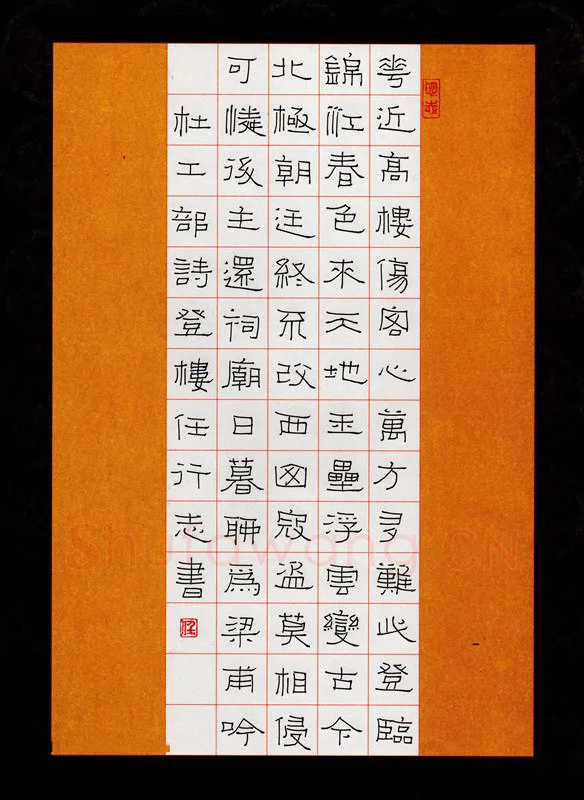 花近高樓傷客心萬方多難此登臨
錦江春色來天地玉壘浮雲變古今
北極朝廷終不改西山寇盜莫相侵
可憐後主還祠廟日暮聊爲梁甫吟
杜工部詩登樓任行志書
Shufawang.CN